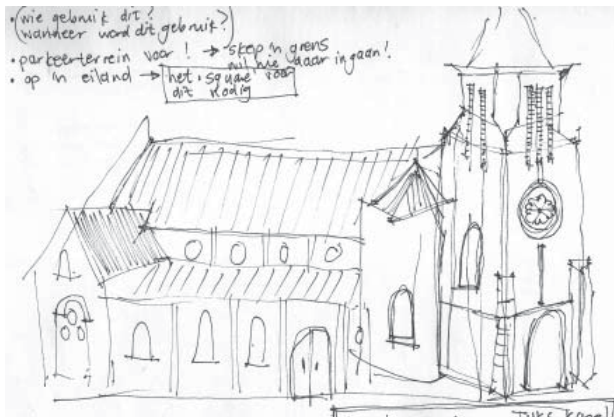 • (wie gebruik dit?
wanneer word dit gebruik?)
• parkeerterrein voor! → skep 'n grens
wil nie daar ingaan!
• op 'n eiland → het 'n square voor
dit nodig